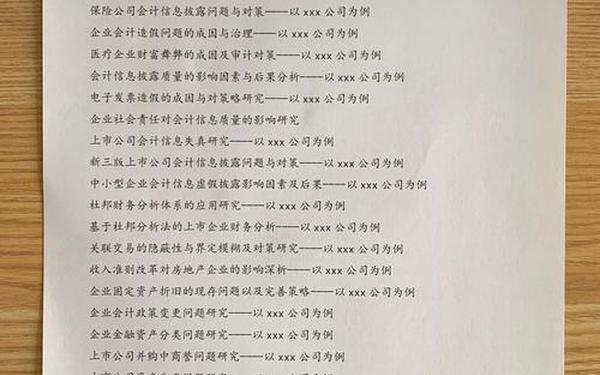 保险公司会计信息披露问题与对策——以 xxx 公司为例
企业会计造假问题的成因与治理——以 xxx 公司为例
医疗企业财富舞弊的成因及审计对策——以 xxx 公司为例
会计信息披露质量的影响因素与后果分析——以 xxx 公司为例
电子发票造假的成因与对策略研究——以 xxx 公司为例
企业社会责任对会计信息质量的影响研究
上市公司会计信息失真研究——以 xxx 公司为例
新三版上市公司会计信息披露问题与对策——以 xxx 公司为例
中小型企业会计信息虚假披露影响因素及后果——以 xxx 公司为例
杜邦财务分析体系的应用研究——以 xxx 公司为例
基于杜邦分析法的上市企业财务分析——以 xxx 公司为例
关联交易的隐蔽性与界定模糊及对策研究——以 xxx 公司为例
收入准则改革对房地产企业的影响深析——以 xxx 公司为例
企业固定资产折旧的现存问题以及完善策略——以 xxx 公司为例
企业会计政策变更问题研究——以 xxx 公司为例
企业金融资产分类问题研究——以 xxx 公司为例
上市公司并购中商誉问题研究——以 xxx 公司为例